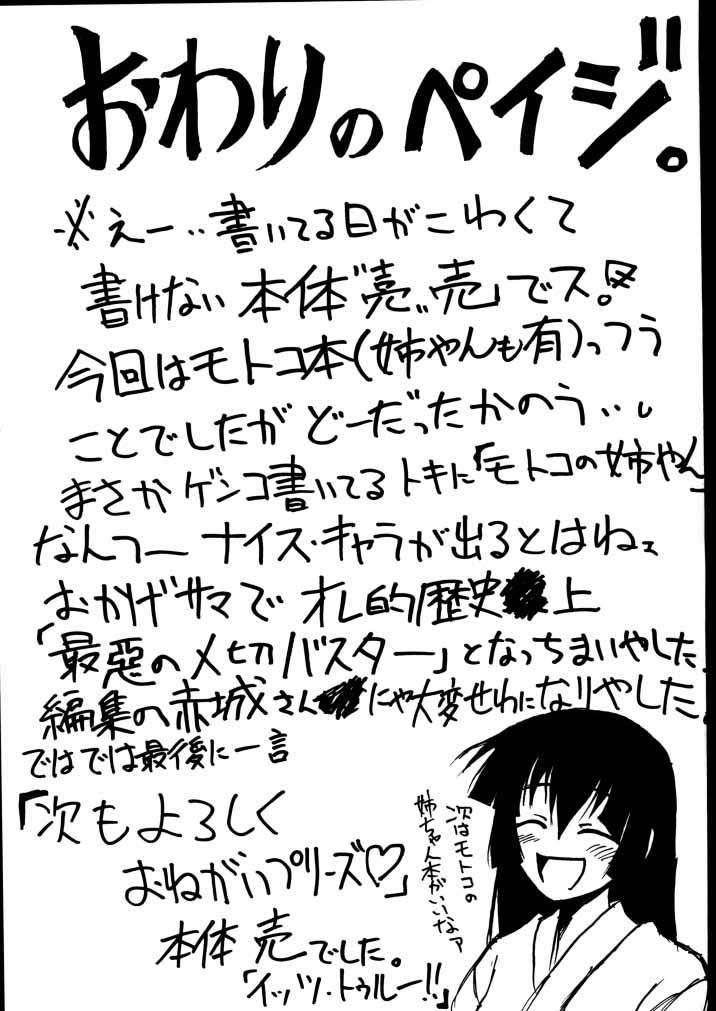 おわりのペイジ。
※えー‥書いてる日がこわくて
書けない 本体 売」でス。
今回はモトコ本(姉やんも有)っつう
ことでしたが どーだったかのう‥。
まさか ゲンコ書いてる トキに「モトコの姉やん」
なんつー ナイス・キャラが出るとはねェ
おかげサマで オレ的歴史 上
「最悪のメ切バスター」となっちまいやした。
編集の赤城さん にゃ大変せわになりやした。
ではでは最後に一言
「次もよろしく
おねがいプリーズ♡」
本体 売でした。
「イッツ・トゥルー!!」
次はモトコの
姉ちゃん本がいいなァ